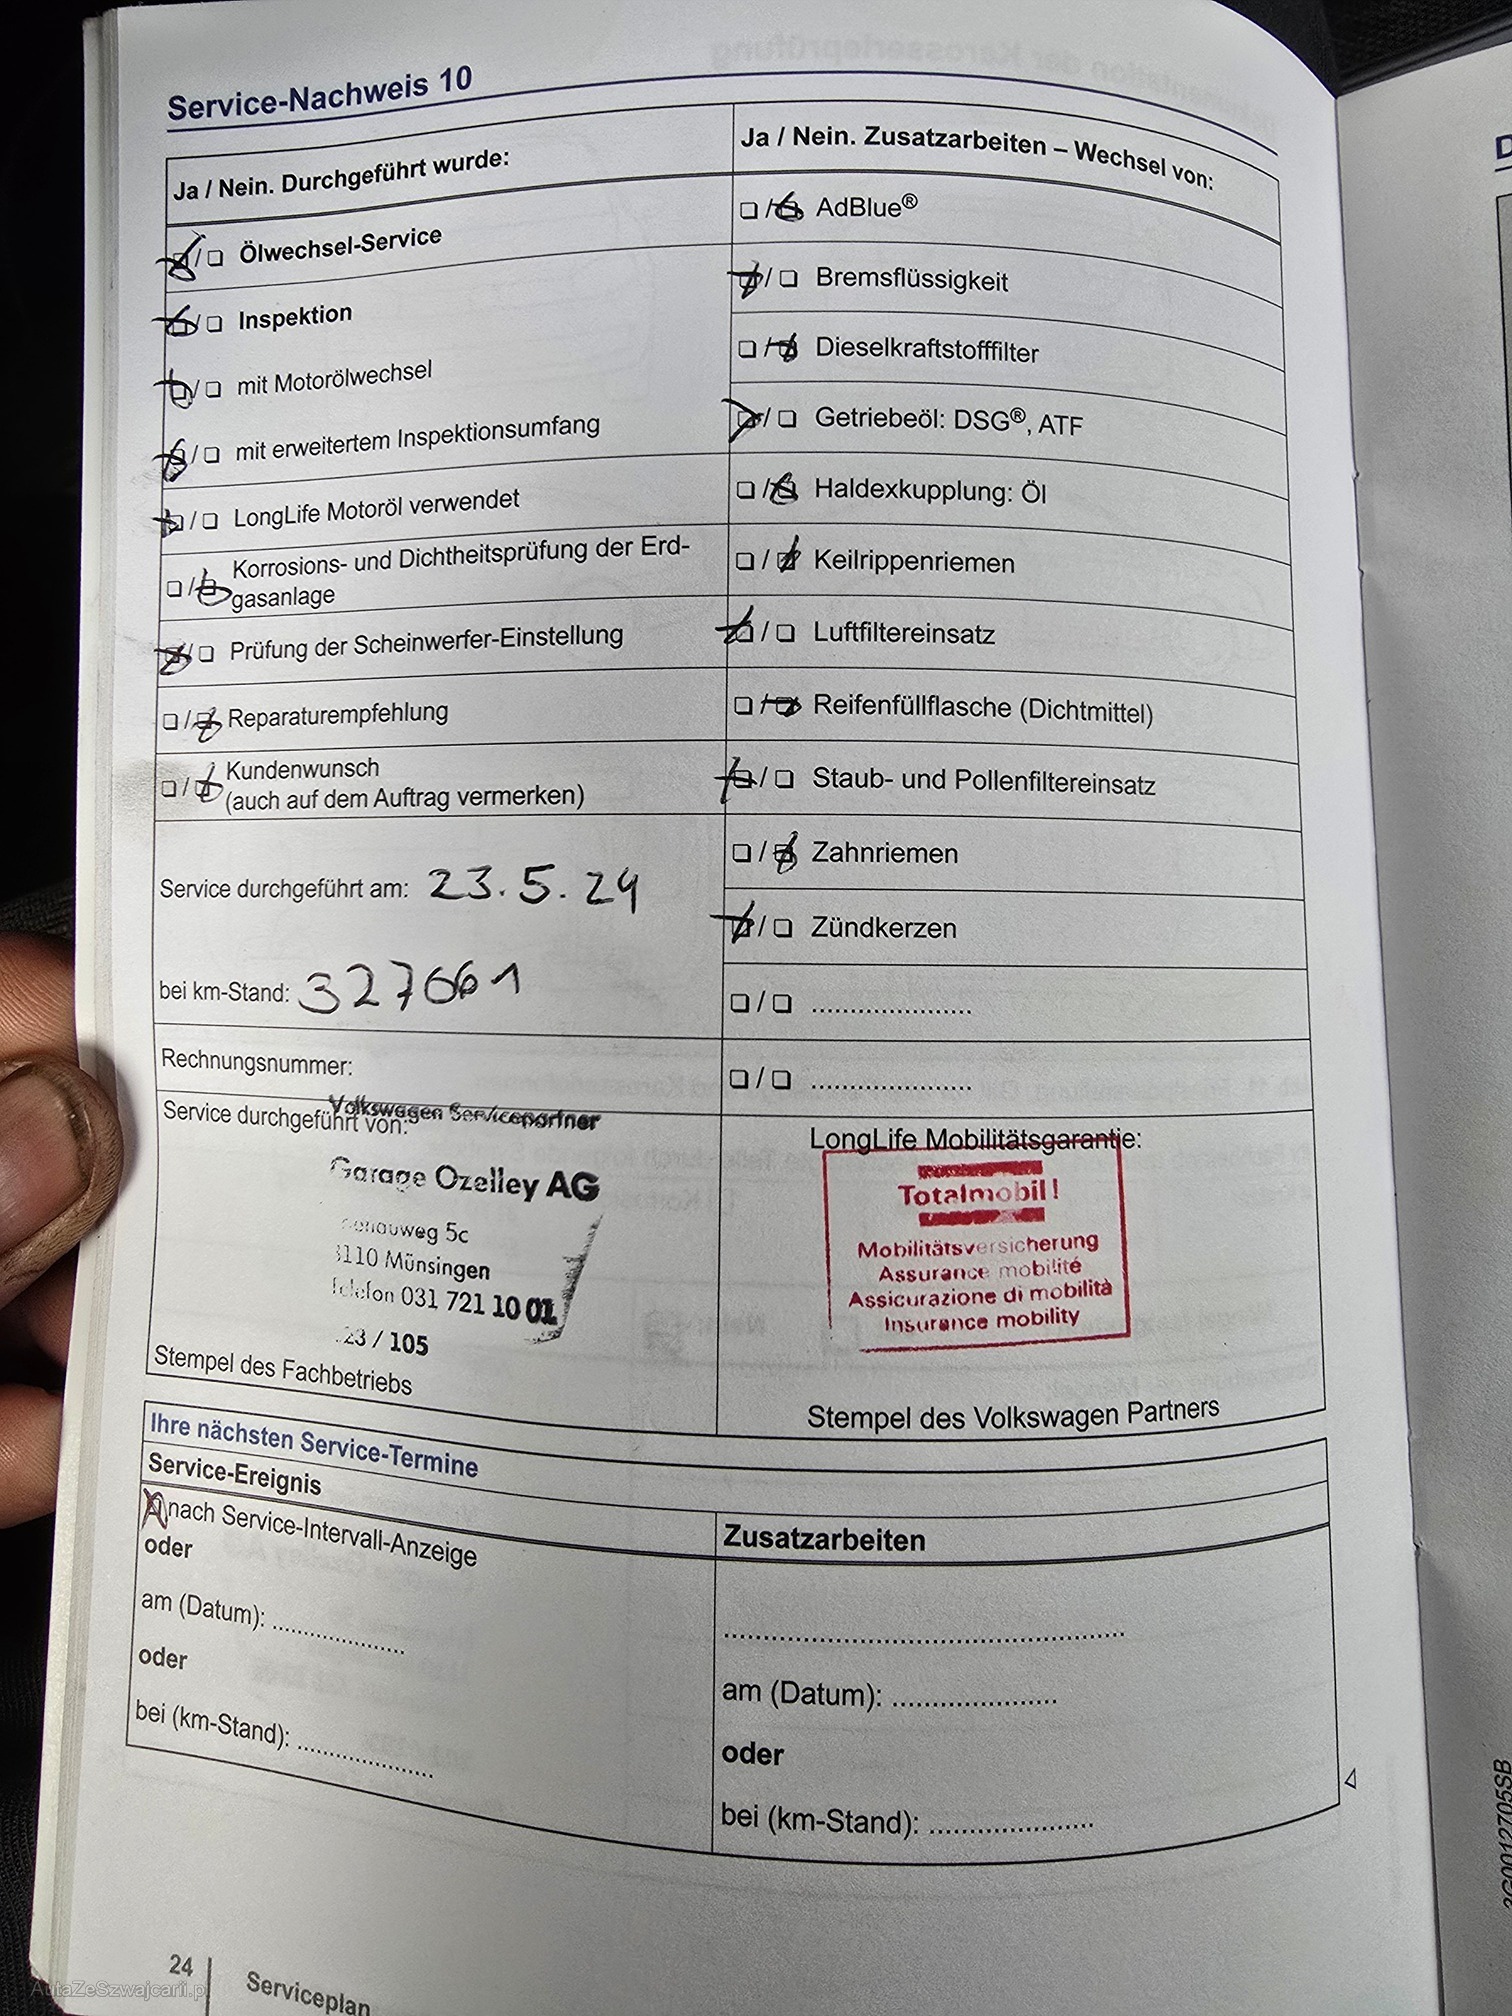 Service-Nachweis 10
Ja / Nein. Durchgeführt wurde:
❏ / ❏ Ölwechsel-Service
❏ / ❏ Inspektion
❏ / ❏ mit Motorölwechsel
❏ / ❏ mit erweitertem Inspektionsumfang
❏ / ❏ LongLife Motoröl verwendet
❏ / ❏ Korrosions- und Dichtheitsprüfung der Erd-
gasanlage
❏ / ❏ Prüfung der Scheinwerfer-Einstellung
❏ / ❏ Reparaturempfehlung
❏ / ❏ Kundenwunsch
(auch auf dem Auftrag vermerken)
Service durchgeführt am: 23.5.24
bei km-Stand: 327661
Rechnungsnummer:
Service durchgeführt von:
Volkswagen Servicepartner
Garage Ozelley AG
5c
3110 Münsingen
Telefon 031 721 10 01
23 / 105
Stempel des Fachbetriebs
Ja / Nein. Zusatzarbeiten – Wechsel von:
❏ / ❏ AdBlue®
❏ / ❏ Bremsflüssigkeit
❏ / ❏ Dieselkraftstofffilter
❏ / ❏ Getriebeöl: DSG®, ATF
❏ / ❏ Haldexkupplung: Öl
❏ / ❏ Keilrippenriemen
❏ / ❏ Luftfiltereinsatz
❏ / ❏ Reifenfüllflasche (Dichtmittel)
❏ / ❏ Staub- und Pollenfiltereinsatz
❏ / ❏ Zahnriemen
❏ / ❏ Zündkerzen
❏ / ❏ ......................
❏ / ❏ ......................
LongLife Mobilitätsgarantie:
Totalmobil!
Mobilitätsversicherung
Assurance mobilité
Assicurazione di mobilità
Insurance mobility
Stempel des Volkswagen Partners
Ihre nächsten Service-Termine
Service-Ereignis
❏ nach Service-Intervall-Anzeige
oder
am (Datum): ......................
oder
bei (km-Stand): ......................
Zusatzarbeiten
......................................................
am (Datum): ......................
oder
bei (km-Stand): ......................
24
Serviceplan
AutaZeSzwajcarii.pl
3G0012705SB
D